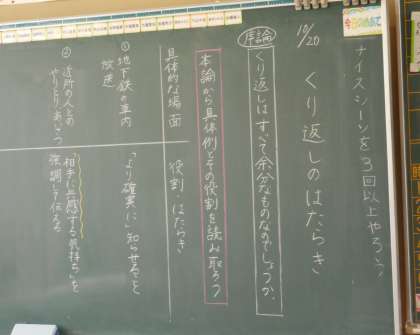 ナイスシーンを3回以上やろう
10/20
くり返しのはたらき
序論
くり返しは、すべて余分なものなのでしょうか。
本論から具体例とその役割を読み取ろう
具体的な場面
役割・はたらき
① 地下鉄の車内
放送
「より確実に」知らせること
② 近所の人との
やりとり・あいさつ
「相手に共感する気持ち」を
強調して伝える